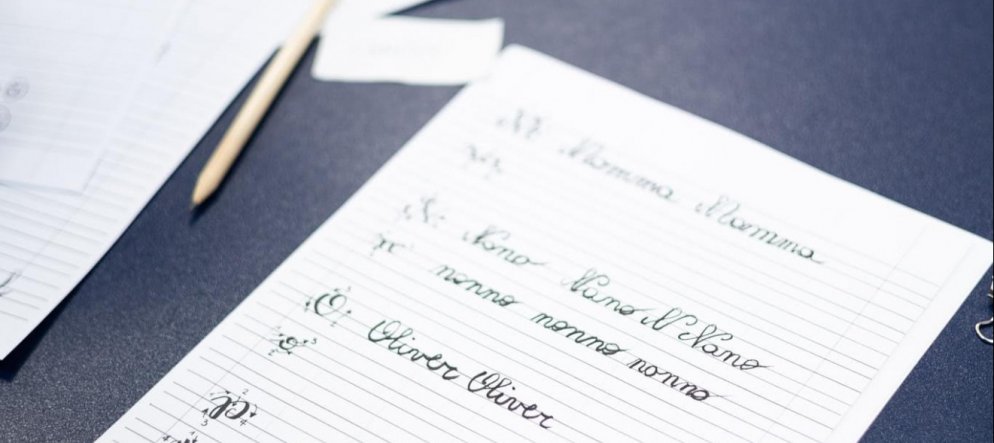 Mamma Mamma
Nono Nano N Nano
nonno nonno nonno
O Oliver Oliver
o
P